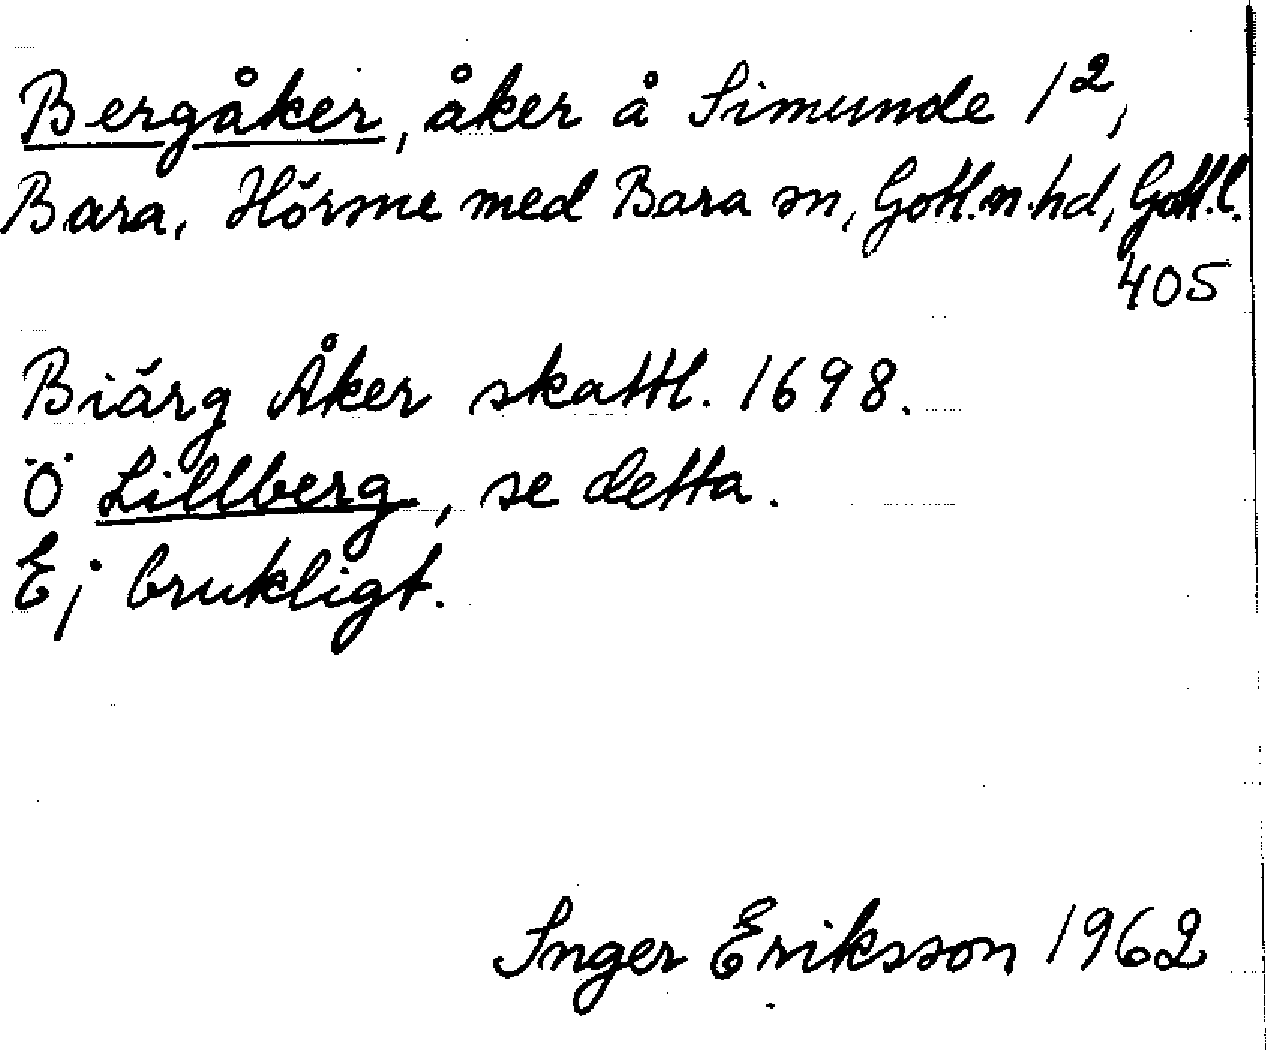 Bergåker, åker å Simunde 1²,
Bara, Hörsne med Bara sn, Gotl.n.hd, Gotl.l.
405
Biärg Åker skattl. 1698.
Ö Lillberg, se detta.
Ej brukligt.
Inger Eriksson 1962